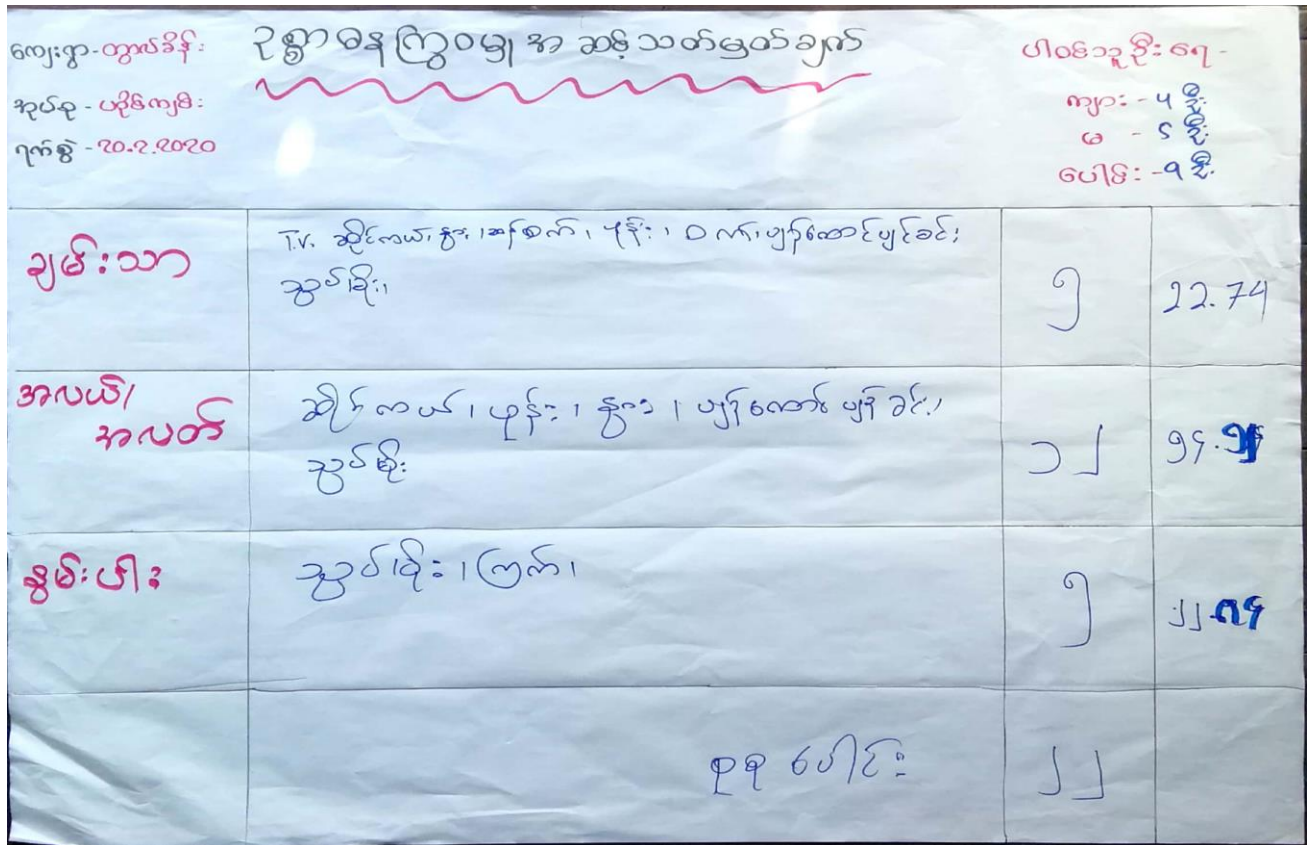 ကျေးရွာ-တွာလ်ခိန်း
အုပ်စု - ပင့်ကျမီး
ရက်စွဲ - 20.2.2020
ဥစ္စာဓနကြွယ်ဝမှုအဆင့်သတ်မှတ်ချက်
ပါဝင်သူဦးရေ -
ကျား - ၅ ဦး
မ - ၄ ဦး
ပေါင်း - ၉ ဦး
ချမ်းသာ
T.V. ဆိုင်ကယ်၊ နွား၊ ဆန်စက်၊ ဖုန်း၊ ဝက်၊ ပျဉ်ထောင်ပျဉ်ခင်း
သွပ်မိုး၊
၅
22.74
အလယ်၊
အလတ်
ဆိုင်ကယ်၊ ဖုန်း၊ နွား၊ ပျဉ်ထောင်ပျဉ်ခင်း၊
သွပ်မိုး
၁၂
၅၄.
နွမ်းပါး
သွပ်မိုး၊ ကြက်၊
၅
၂၂.
စုစုပေါင်း
၂၂